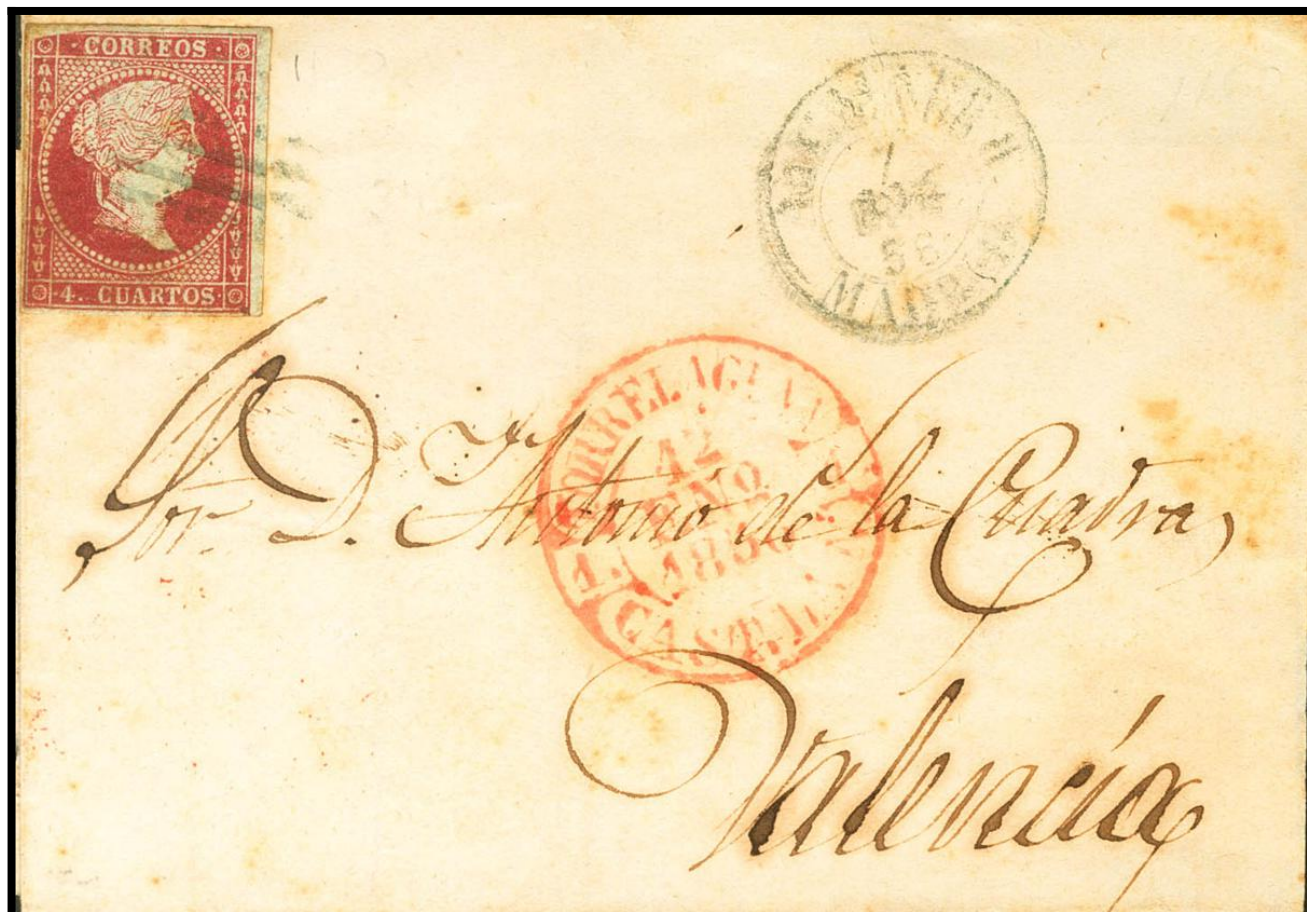 · CORREOS ·
4. CUARTOS·
56
MADRID
TORRELAGUNA
12
ENO
1856
CAST. LA N.
Sor. D. Antonio de la Cuadra,
Valencia